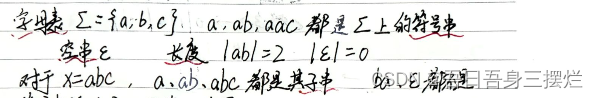 字母表 Σ={a,b,c}. a,ab,aac 都是Σ上的符号串
空串 ε 长度 |ab|=2 |ε|=0
对于 x=abc, a、ab、abc 都是其子串 ε 都是
CSDN @吾身三摆烂